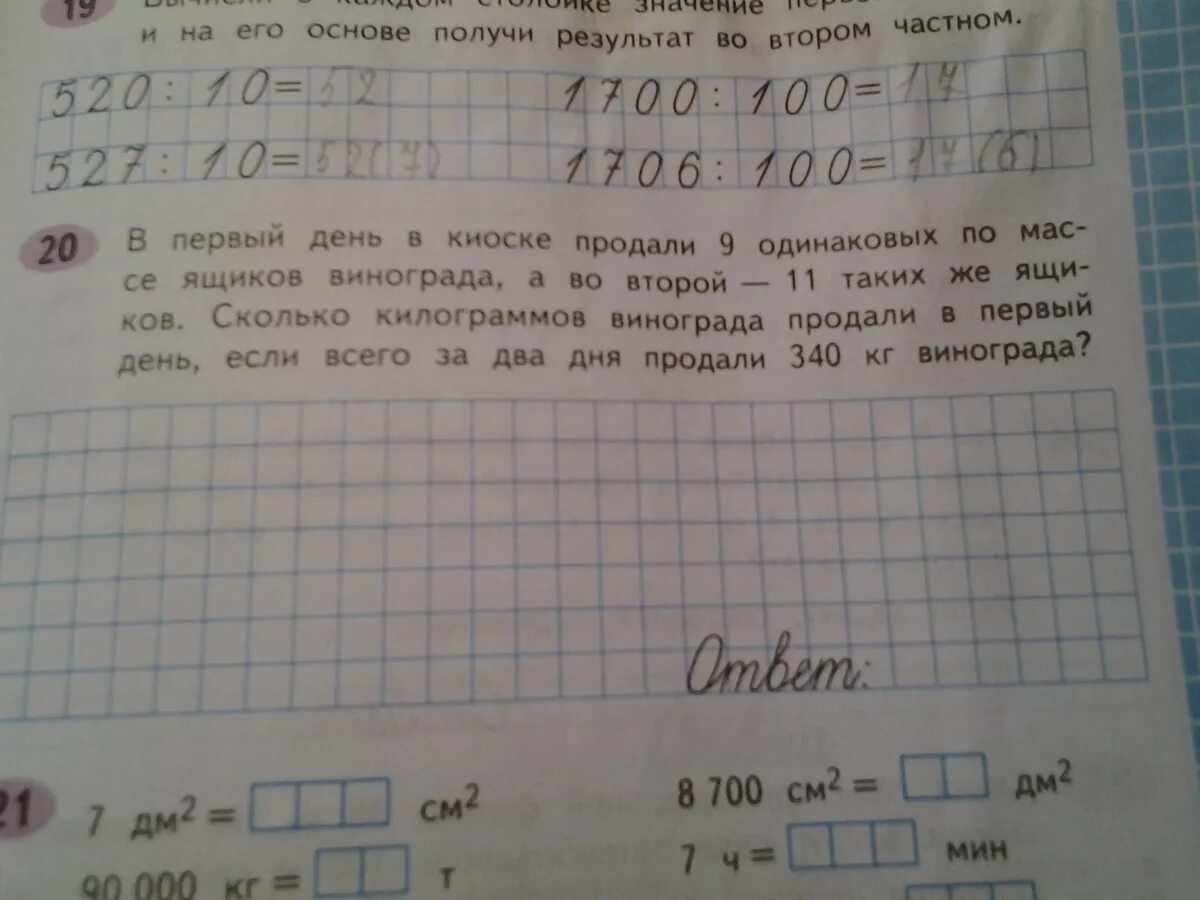 19 Вычисли в каждом столбике значение
и на его основе получи результат во втором частном.
520 : 10 = 52 1700 : 100 = 17
527 : 10 = 52(7) 1706 : 100 = 17(6)
20 В первый день в киоске продали 9 одинаковых по мас-
се ящиков винограда, а во второй — 11 таких же ящи-
ков. Сколько килограммов винограда продали в первый
день, если всего за два дня продали 340 кг винограда?
Ответ:
21 7 дм² = см² 8 700 см² = дм²
90 000 кг = т 7 ч = мин